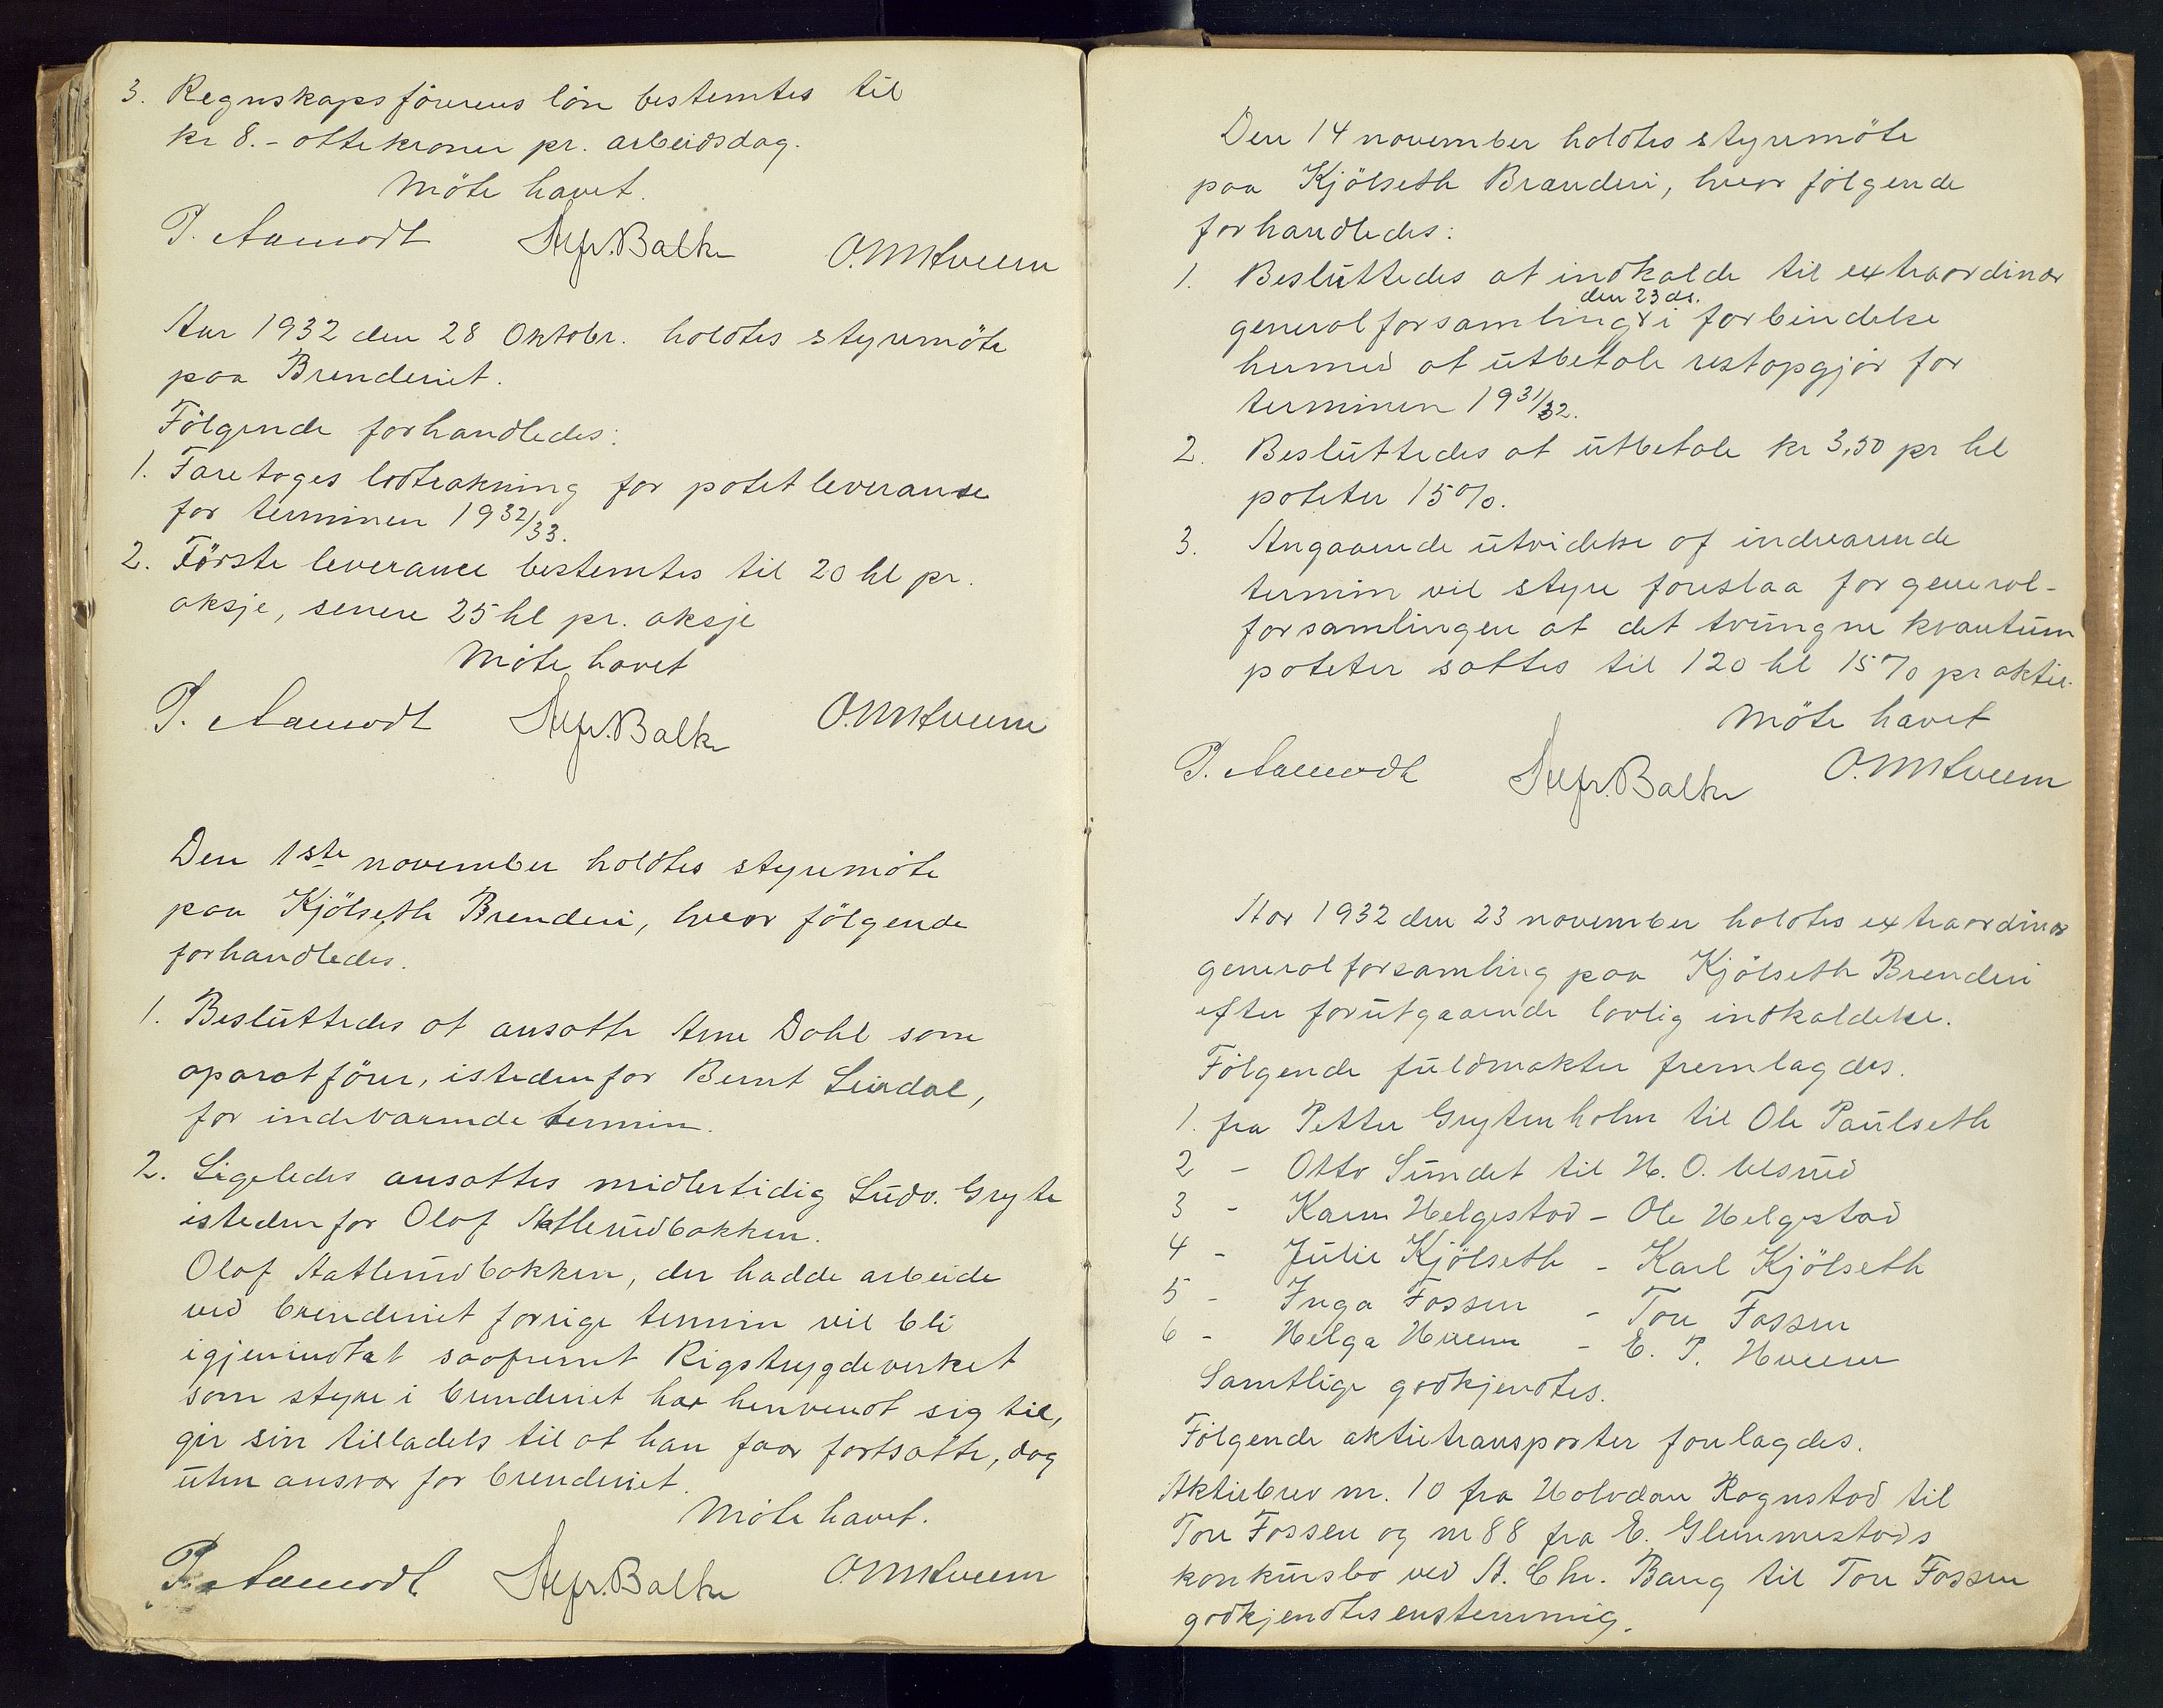 3. Regnskapsförerens lön bestemtes til
kr 8.- ottekroner pr. arbeidsdag.
Möte hævet.
P. Aamodt Alfr. Balke O.M. Hveem
Aar 1932 den 28 Oktobr. holdtes styremöte
paa Brenderiet.
Fölgende forhandledes:
1. Foretoges lodtrækning for potetleveranse
for terminen 1932/33.
2. Förste leverance bestemtes til 20 hl pr.
aksje, senere 25 hl pr. aksje
Möte hævet
P. Aamodt Alfr. Balke O.M. Hveem
Den 1ste november holdtes styremöte
paa Kjölseth Brenderi, hvor fölgende
forhandledes.
1. Besluttedes at ansætte Arne Dahl som
aparatförer, istedenfor Bernt Leirdal,
for indeværende termin.
2. Ligeledes ansattes midlertidig Ludv. Gryte
istedenfor Olaf Aatlundbakken.
Olaf Aatlundbakken, der hadde arbeide
ved brenderiet forrige termin vil bli
igjenindtat saafremt Rigstrygdeverket
som styre i brenderiet har henvendt sig til,
gir sin tilladels til at han faar fortsætte, dog
uten ansvar for brenderiet.
Möte hævet.
P. Aamodt Alfr. Balke O.M. Hveem
Den 14 november holdtes styremöte
paa Kjölseth Brænderi, hvor fölgende
forhandledes:
1. Besluttedes at indkalde til extraordinær
den 23 ds.
generalforsamling i forbindelse
hermed at utbetale restopgjör for
terminen 1931/32.
2. Besluttedes at utbetale kr 3,50 pr hl
poteter 15%.
3. Angaaende utvidelse af indeværende
termin vil styre foreslaa for general-
forsamlingen at det tvungne kvantum
poteter sættes til 120 hl 15% pr aktie.
Möte hævet
P. Aamodt Alfr. Balke O.M. Hveem
Aar 1932 den 23 november holdtes extraordinær
generalforsamling paa Kjölseth Brenderi
efter forutgaaende lovlig indkaldelse.
Fölgende fuldmakter fremlagdes.
1. fra Petter Grytenholm til Ole Paulseth
2 - Otto Sundet til H. O. Ulsrud
3 - Karen Helgestad - Ole Helgestad
4 - Julie Kjölseth - Karl Kjölseth
5 - Inga Fossen - Tore Fossen
6 - Helga Hveem - E. P. Hveem
Samtlige godkjendtes.
Fölgende aktietransporter forelagdes.
Aktiebrev nr. 10 fra Halvdan Rognstad til
Tore Fossen og nr 88 fra E. Glemmestads
konkursbo ved A. Chr. Bang til Tore Fossen
godkjendtes enstemmig.